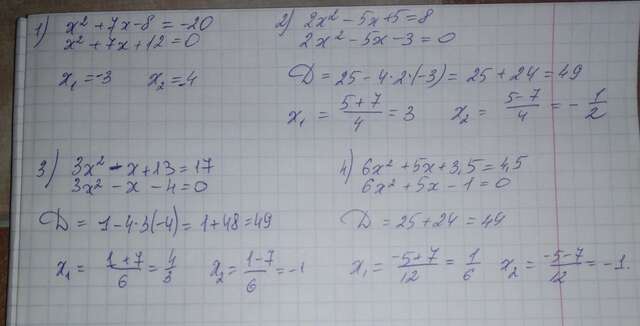 1) x² + 7x - 8 = -20
x² + 7x + 12 = 0
x₁ = -3 x₂ = -4
2) 2x² - 5x + 5 = 8
2x² - 5x - 3 = 0
D = 25 - 4·2·(-3) = 25 + 24 = 49
x₁ = (5+7)/4 = 3 x₂ = (5-7)/4 = -1/2
3) 3x² - x + 13 = 17
3x² - x - 4 = 0
D = 1 - 4·3(-4) = 1 + 48 = 49
x₁ = (1+7)/6 = 4/3 x₂ = (1-7)/6 = -1
4) 6x² + 5x + 3,5 = 4,5
6x² + 5x - 1 = 0
D = 25 + 24 = 49
x₁ = (-5+7)/12 = 1/6 x₂ = (-5-7)/12 = -1.